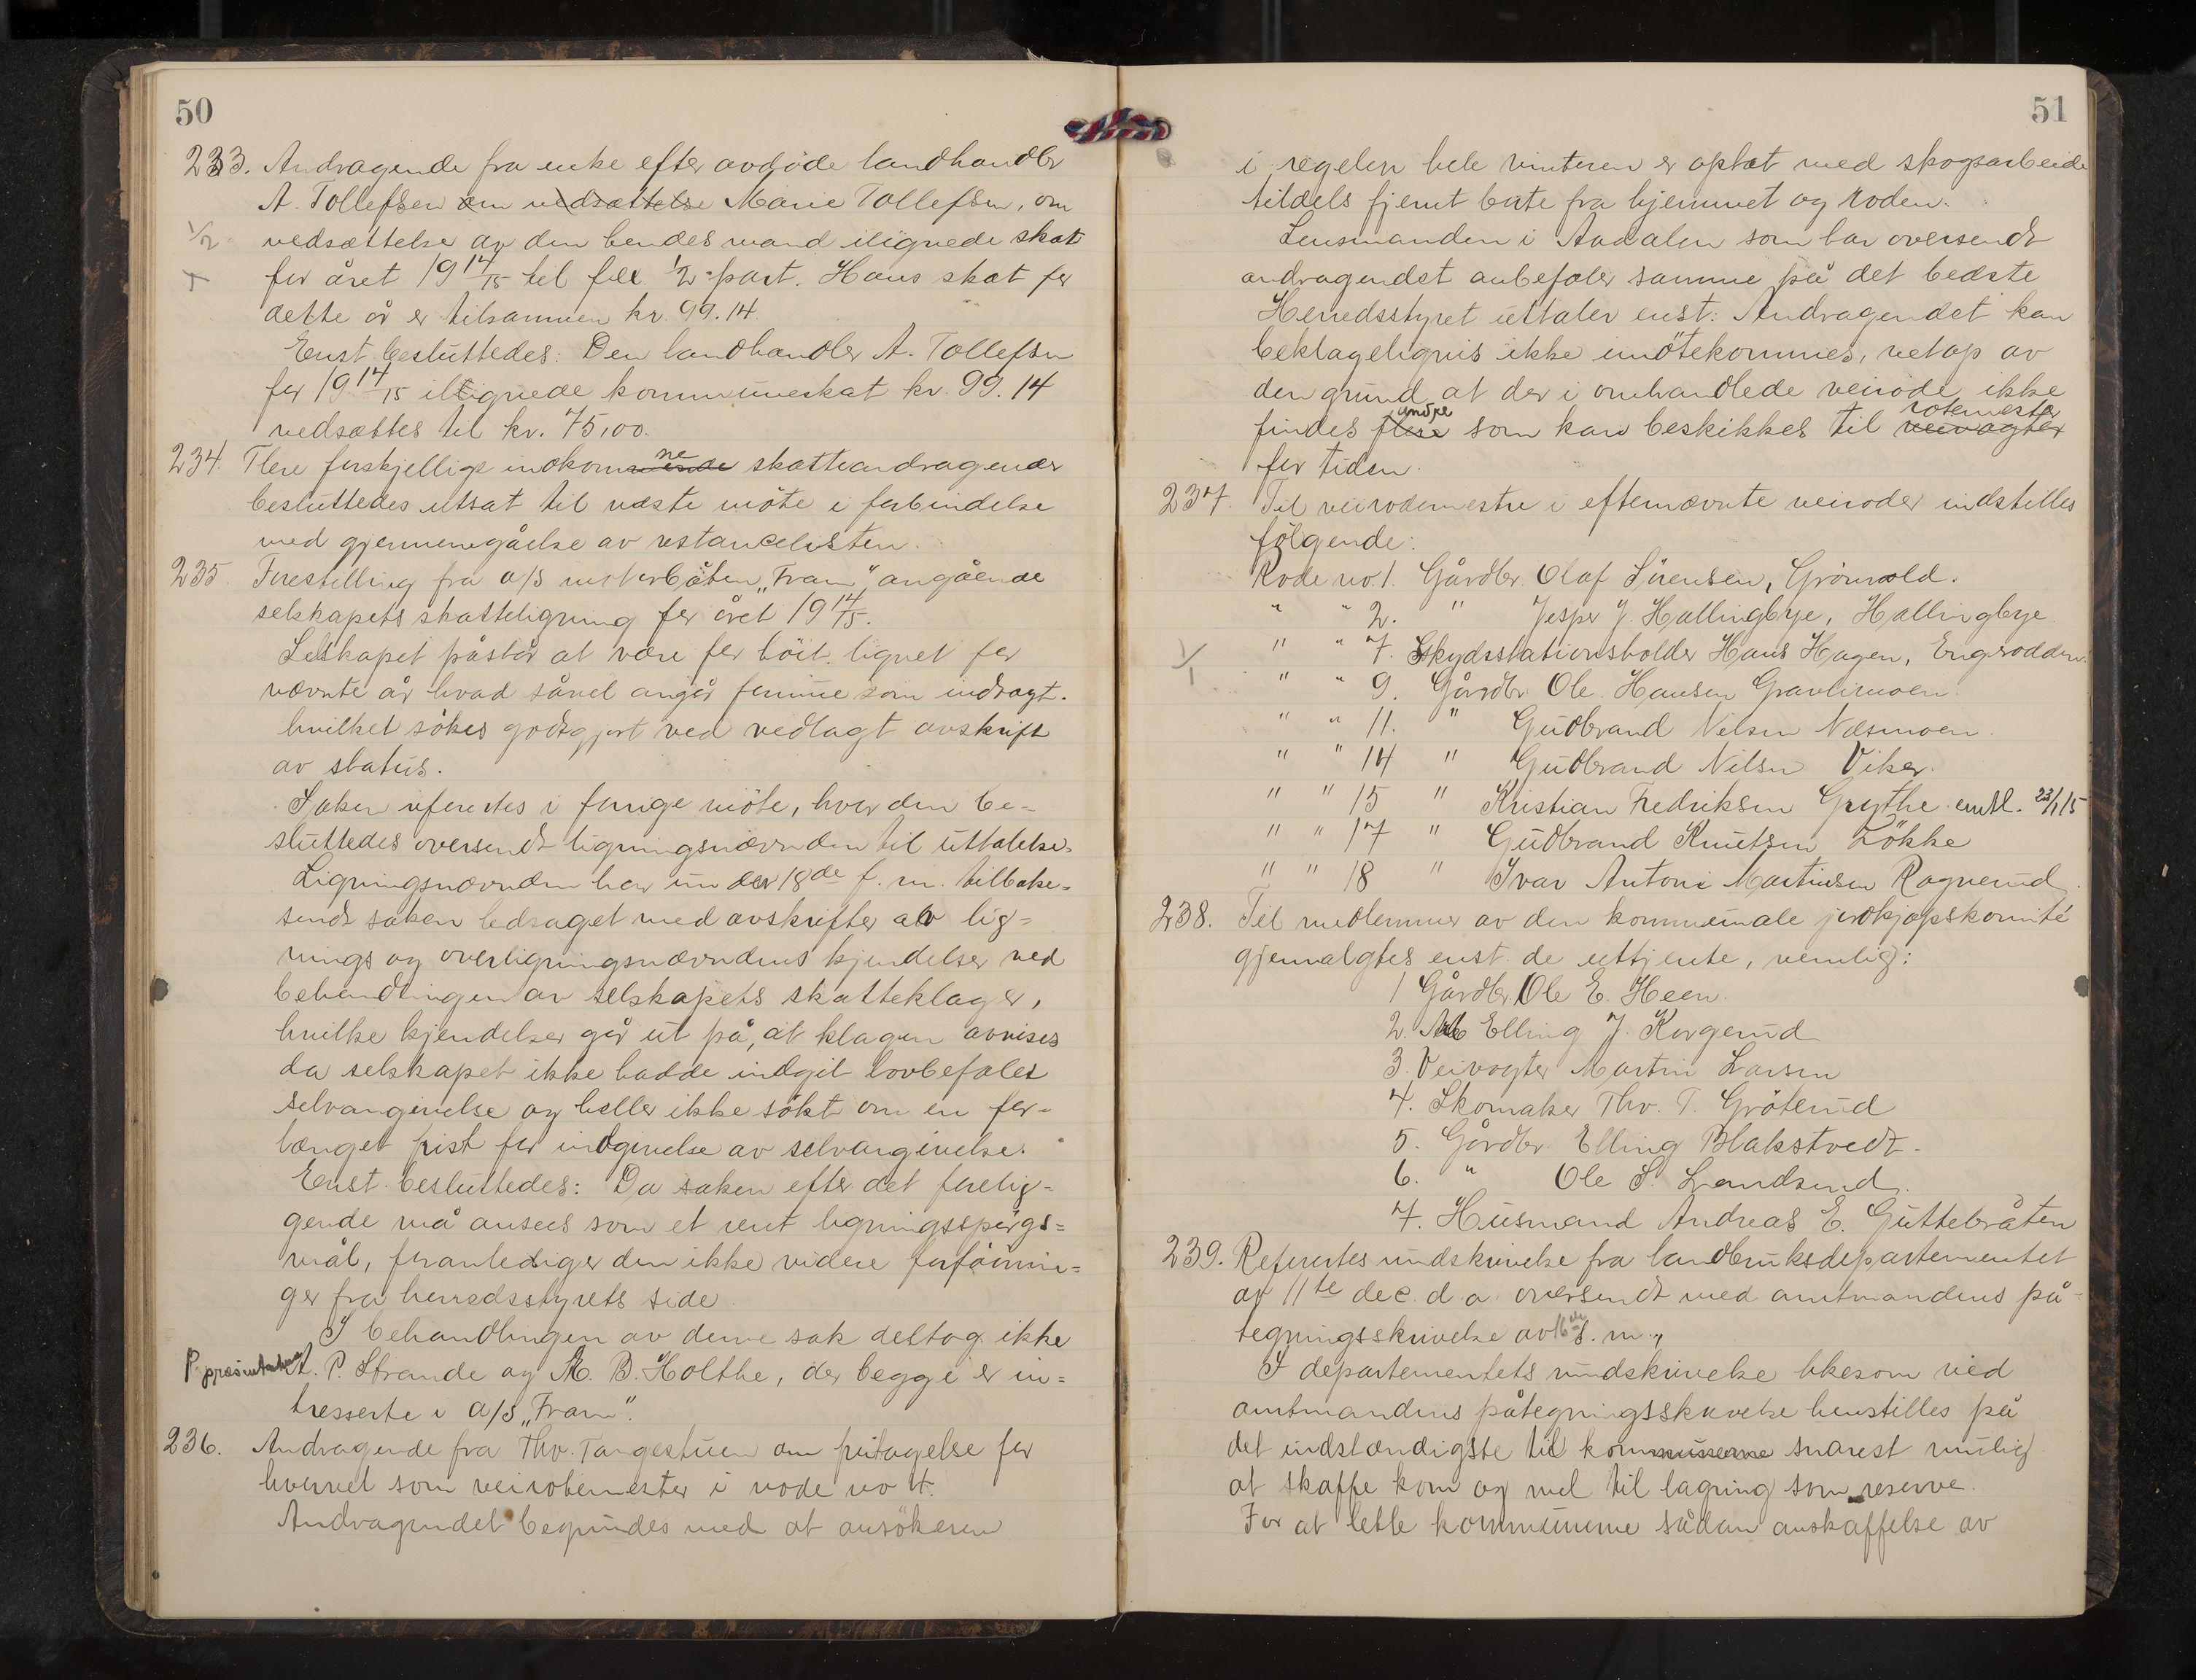 50
233. Andragende fra enke efter avdøde landhandler
A. Tollefsen om nedsættelse Marie Tollefsen, om
1/2 nedsættelse av den hendes mand ilignede skat
for året 1914/15 til fex 1/2-part. Hans skat for
dette år er tilsammen kr. 99.14.
Enst. besluttedes: Den landhandler A. Tollefsen
for 1914/15 ilignede kommuneskat kr. 99.14
nedsættes til kr. 75,00.
234. Flere forskjellige indkomne skatteandragender
besluttedes utsat til næste möte i forbindelse
med gjennemgåelse av restancelisten.
235. Forestilling fra a/s motorbåten "Fram", angående
selskapets skatteligning for året 1914/15.
Selskapet påstår at være for höit lignet for
nævnte år hvad såvel angår formue som indtægt.
hvilket sökes godtgjort ved vedlagt avskrift
av status.
Saken refereredes i forrige möte, hvor den be-
sluttedes oversendt ligningsnævnden til uttalelse.
Ligningsnævnden har nu den 18de f.m. tilbake-
sendt saken ledsaget med avskrifter av lig-
nings og overligningsnævndens kjendelser ved
behandlingen av selskapets skatteklager,
hvilke kjendelser går ut på, at klagen avvises
da selskapet ikke hadde indgit lovbefalet
selvangivelse og heller ikke sökt om en for-
længet frist for indgivelse av selvangivelse.
Enst. besluttedes: Da saken efter det forelig-
gende må ansees som et rent ligningsspörgs-
mål, foranlediger den ikke videre forföinin-
ger fra herredsstyrets side.
I behandlingen av denne sak deltog ikke
A. P. Strande og M. B. Holthe, der begge er in-
tresserte i a/s "Fram".
236. Andragende fra Thv. Tangestuen om fritagelse for
hvervet som veirotemester i rode no 4.
Andragendet begrundes med at ansökeren
51
i regelen hele vinteren er optat med skogsarbeide
tildels fjernt borte fra hjemmet og roden.
Lensmanden i Aadalen som har oversendt
andragendet anbefaler samme på det bedste
Herredsstyret uttaler enst: Andragendet kan
beklageligvis ikke imötekommes, netop av
den grund at der i omhandlede veirode ikke
findes flere andre som kan beskikkes til veivogter rotemester
for tiden.
237. Til veirodemestre i efternævnte veiroder indstilles
fölgende:
Rode no. 1. Gårdbr. Olaf Sörensen, Grönvold.
" " 2. " Jesper J. Hallingbye, Hallingbye
" " 7. Skydsstationsholder Hans Hagen, Engerodden.
" " 9. Gårdbr. Ole Hansen Gravlimoen.
" " 11. " Gudbrand Nilsen Næsmoen.
" " 14 " Gudbrand Nilsen Viker.
" " 15 " Kristian Fredriksen Grythe. emtl. 23/1 15
" " 17 " Gudbrand Knutsen Lökke
" " 18 " Ivar Anton Martinsen Ragnerud.
238. Til medlemmer av den kommunale jordkjöpskomité
gjenvalgtes enst. de uttjente, nemlig:
1 Gårdbr. Ole E. Heen.
2. Elling J. Korgerud
3. Veivogter Martin Larsen
4. Skomaker Thv. T. Gröterud
5. Gårdbr. Elling Blakstvedt.
6. " Ole S. Landsend.
7. Husmand Andreas E. Guttebråten
239. Referertes rundskrivelse fra landbruksdepartementet
av 11te dec. d. a. oversendt med amtmandens på-
tegningsskrivelse av 16de s. m.,
I departementets rundskrivelse likesom ved
amtmandens påtegningsskrivelse henstilles på
det indstændigste til kommunerne snarest mulig
at skaffe korn og mel til lagring som reserve.
For at lette kommunerne sådan anskaffelse av